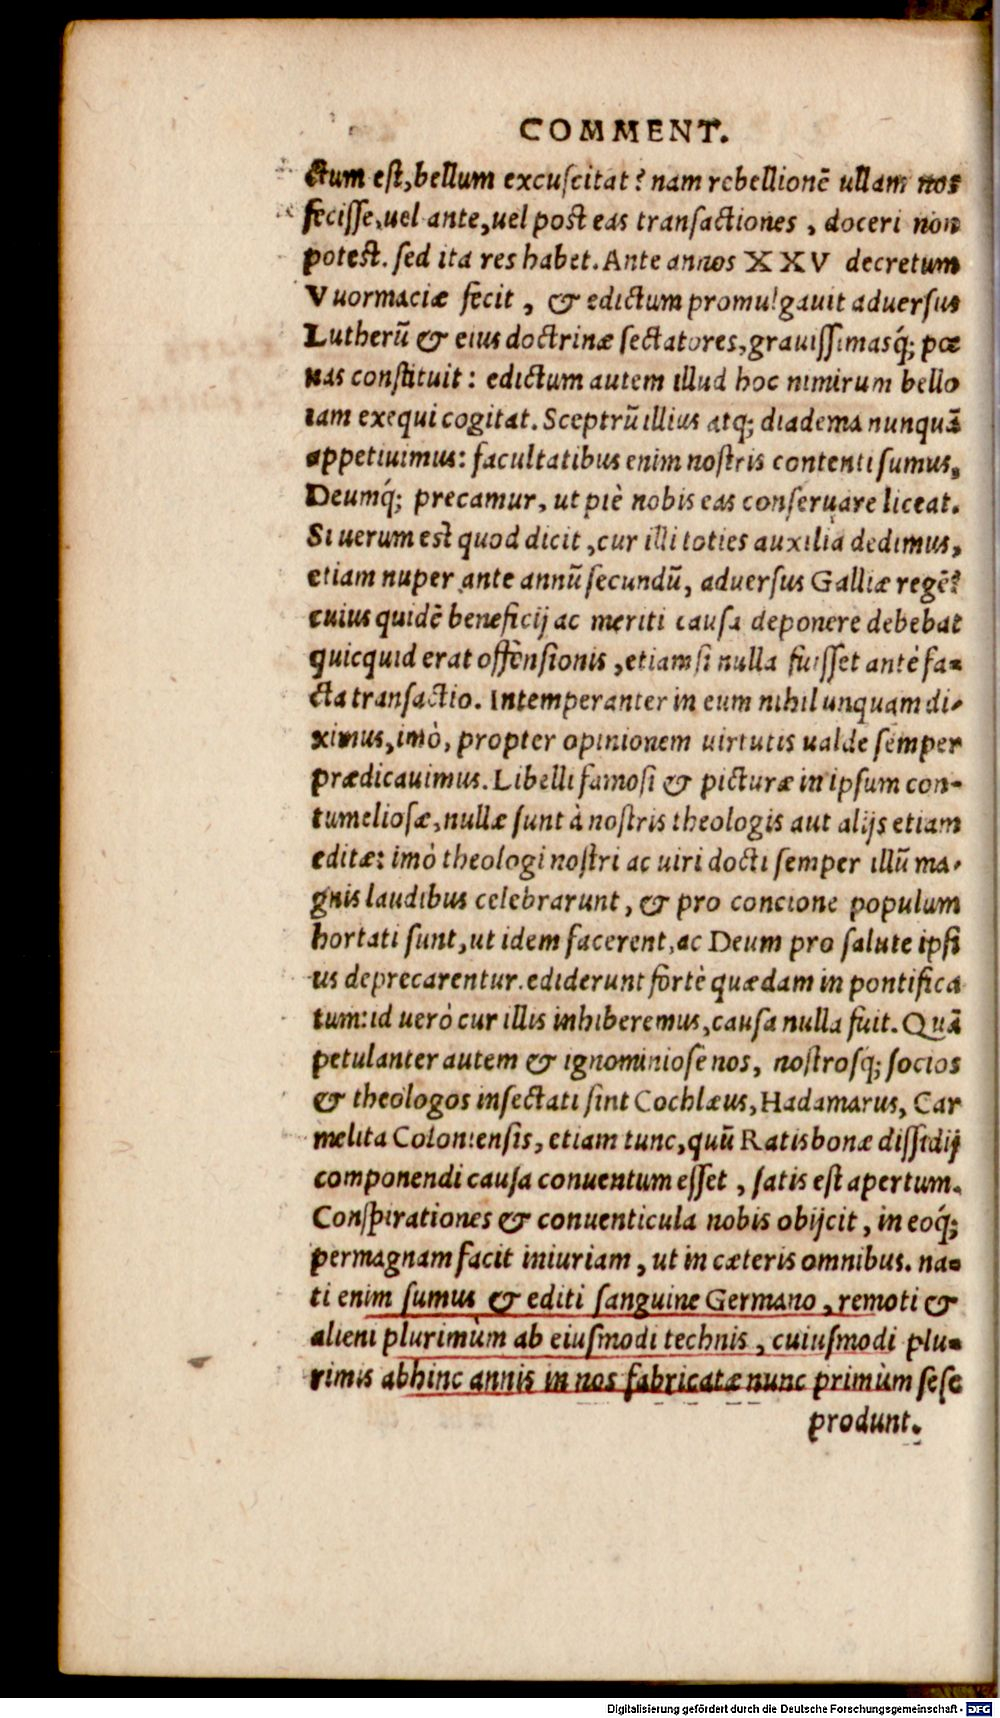 COMMENT.
ctum est, bellum excuscitat? nam rebellionē ullam nos
fecisse, uel ante, uel post eas transactiones, doceri non
potest. sed ita res habet. Ante annos XXV decretum
Vuormaciæ fecit, & edictum promulgauit aduersus
Lutherū & eius doctrinæ sectatores, grauissimasq́; pœ
nas constituit: edictum autem illud hoc nimirum bello
iam exequi cogitat. Sceptrū illius atq; diadema nunquā
appetiuimus: facultatibus enim nostris contenti sumus,
Deumq́; precamur, ut piè nobis eas conseruare liceat.
Si uerum est quod dicit, cur illi toties auxilia dedimus,
etiam nuper ante annū secundū, aduersus Galliæ regē?
cuius quidē beneficij ac meriti causa deponere debebat
quicquid erat offensionis, etiamsi nulla fuisset antè fa-
cta transactio. Intemperanter in eum nihil unquam di-
ximus, imò, propter opinionem uirtutis ualde semper
prædicauimus. Libelli famosi & picturæ in ipsum con-
tumeliosæ, nullæ sunt à nostris theologis aut alijs etiam
editæ: imò theologi nostri ac uiri docti semper illū ma-
gnis laudibus celebrarunt, & pro concione populum
hortati sunt, ut idem facerent, ac Deum pro salute ipsi
us deprecarentur. ediderunt fortè quædam in pontifica
tum: id uerò cur illis inhiberemus, causa nulla fuit. Quā
petulanter autem & ignominiosè nos, nostrosq́; socios
& theologos insectati sint Cochlæus, Hadamarus, Car
melita Coloniensis, etiam tunc, quū Ratisbonæ dissidij
componendi causa conuentum esset, satis est apertum.
Conspirationes & conuenticula nobis obijcit, in eoq́;
permagnam facit iniuriam, ut in cæteris omnibus. na-
ti enim sumus & editi sanguine Germano, remoti &
alieni plurimùm ab eiusmodi technis, cuiusmodi plu-
rimis abhinc annis in nos fabricatæ nunc primùm sese
produnt.
Digitalisierung gefördert durch die Deutsche Forschungsgemeinschaft - DFG